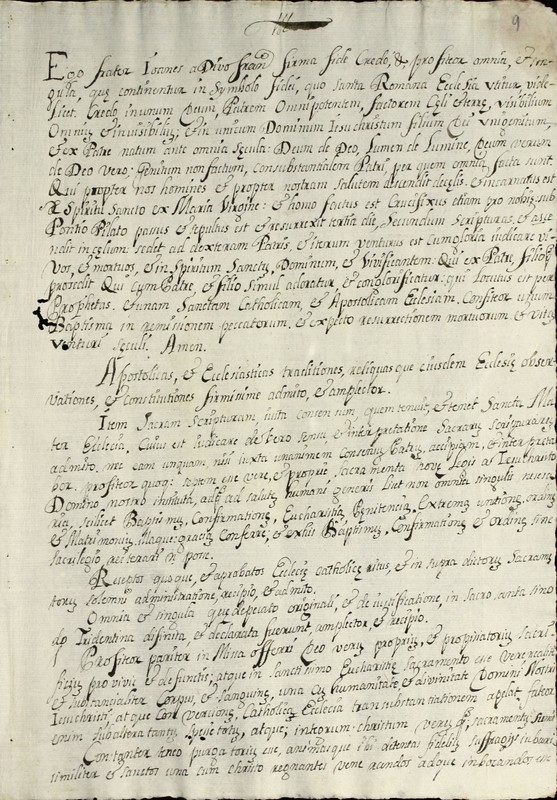 9
Ego frater Ioanes a Divo Fran.co firma fide Credo, &, profiteor omnia, et sin-
gula, quę continentur in Symbolo fidei, quo santa Romana Ecclesia utitur vide-
licet. Credo in unum Deum, Patrem Omnipotentem, factorem Cęli et terrę, visibilium
Omniū, et invisibiliū; et in unicum Dominum Iesuchristum filium Dei Unigenitum,
et ex Patre natum ante omnia sęcula: Deum de Deo, lumen de Lumine, Deum verum
de Deo vero: Genitum non factum, consubstantialem Patri, per quem omnia facta sunt.
Qui propter nos homines et propter nostram salutem descendit de cęlis. et incarnatus est
de Spiritu Sancto ex Maria Virgine: et homo factus est Crucifixus etiam pro nobis: sub
Pontio Pilato passus et sepultus est et resurrexit tertia die, secundum Scripturas. et asse
ndit in cęlum: sedet ad dexteram Patris, et iterum venturus est cum gloria iudicare vi-
vos, et mortuos, et in Spiritum Sanctū, Dominum, et Vivificantem: Qui ex Patre, filioq;
prosedit Qui cum Patre, et filio simul adoratur, et conglorificatur: qui locutus est per
Prophetas. et unam Sanctam Catholicam, et Apostolicam Eclesiam. Confiteor unum
Baptisma in remissionem peccatorum. et expecto resurrectionem mortuorum et vitą
venturi sęculi. Amen.
Apostolicas, et Ecclesiasticas traditiones, reliquas que eiusdem Ecclesię obser-
vationes, et constitutiones firmissime admito, et amplector.
Item Sacram Scripturam iuxta consensum, quem tenuit, et tenet Sancta Ma-
ter Ecclecia, Cuius est iudicare de vero sensu et interpretatione Sacrarū scripturarū
admito. nec eam unquam, nisi iuxta unanimem consensū Patrū, accipiam, et interpreta
bor. profiteor quoq: septem esse vere, et proprie sacramenta novę legis a Iesuchristo
Domino nostro instituta, adq; ad salutē humani generis licet non omnia singulis nesesa
ria, scilicet Baptismū, Confirmationē, Eucharistia, Penitencia, Extremā untionē, ordinē
et Matrimoniū, illaque: gracia Conferre, et ex his Baptismū, Confirmationē et ordinē sine
sacrilegio, reiterari nō pose.
Reseptos quoque, et aprobatos Ecclecię catholicę ritus, et in supra dictorū Sacramē
torū solemni administratione, recipio, et admito.
Omnia et singula quę de pecato originali, et de iustificatione, in sacro santa sino
do Tridentina difinita, et declarata fuerunt, amplector, et recipio.
Profiteor pariter in Missa offerri Deo verū, propriū, et propitiatoriū sacri
ficiū pro vivis et defuntis: atque in sanctissimo Eucharistię Sacramento esse vere realiter
et substancialiter Corpus, et Sanguinē, una cū humanitate et divinitate Domini Nostri
Iesuchristi;
Constanter teneo purgatoriū esse, animasque ibi detentas fidelium suffragijs iubari
similiter et sanctos una cum christo regnantes venerandos adque inbocandos esse